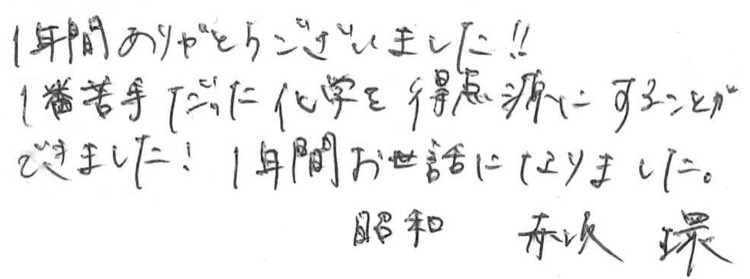 1年間ありがとうございました!!
1番苦手だった化学を得点源にすることが
できました! 1年間お世話になりました。
昭和 赤坂 環